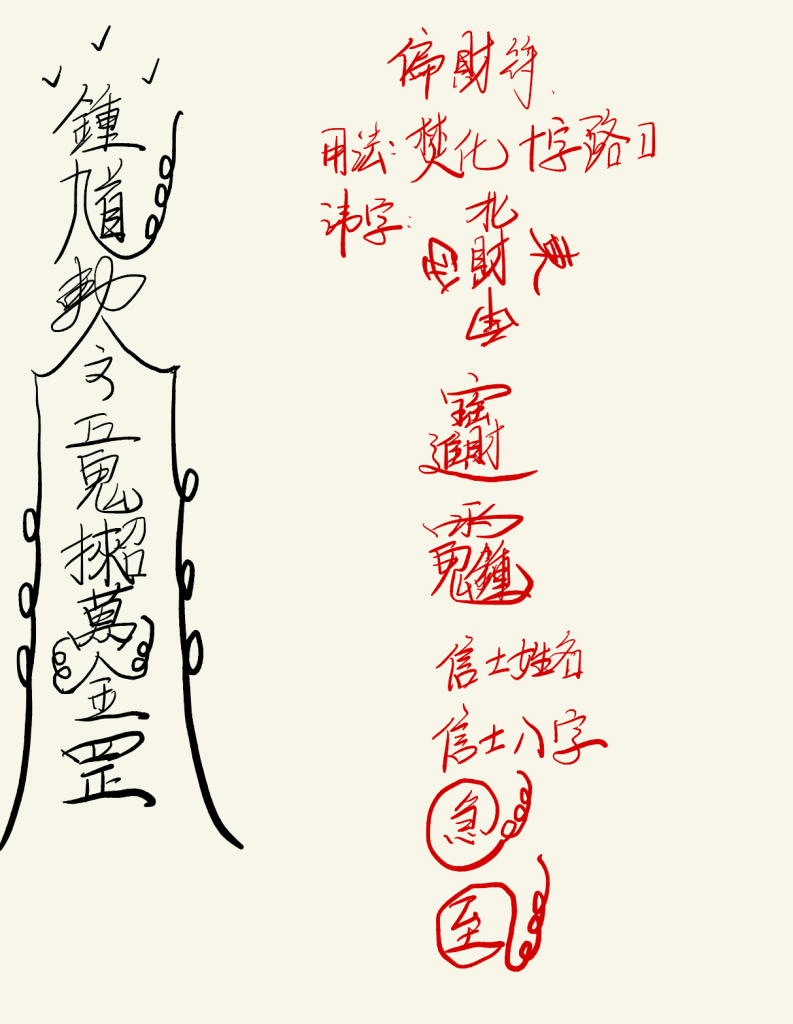 鍾
馗
勅
文
五鬼
招
萬
金
罡
偏財符
用法：焚化十字路口
讳字：
北
西 財 東
進財
鬼鍾
信士姓名
信士八字
急
至